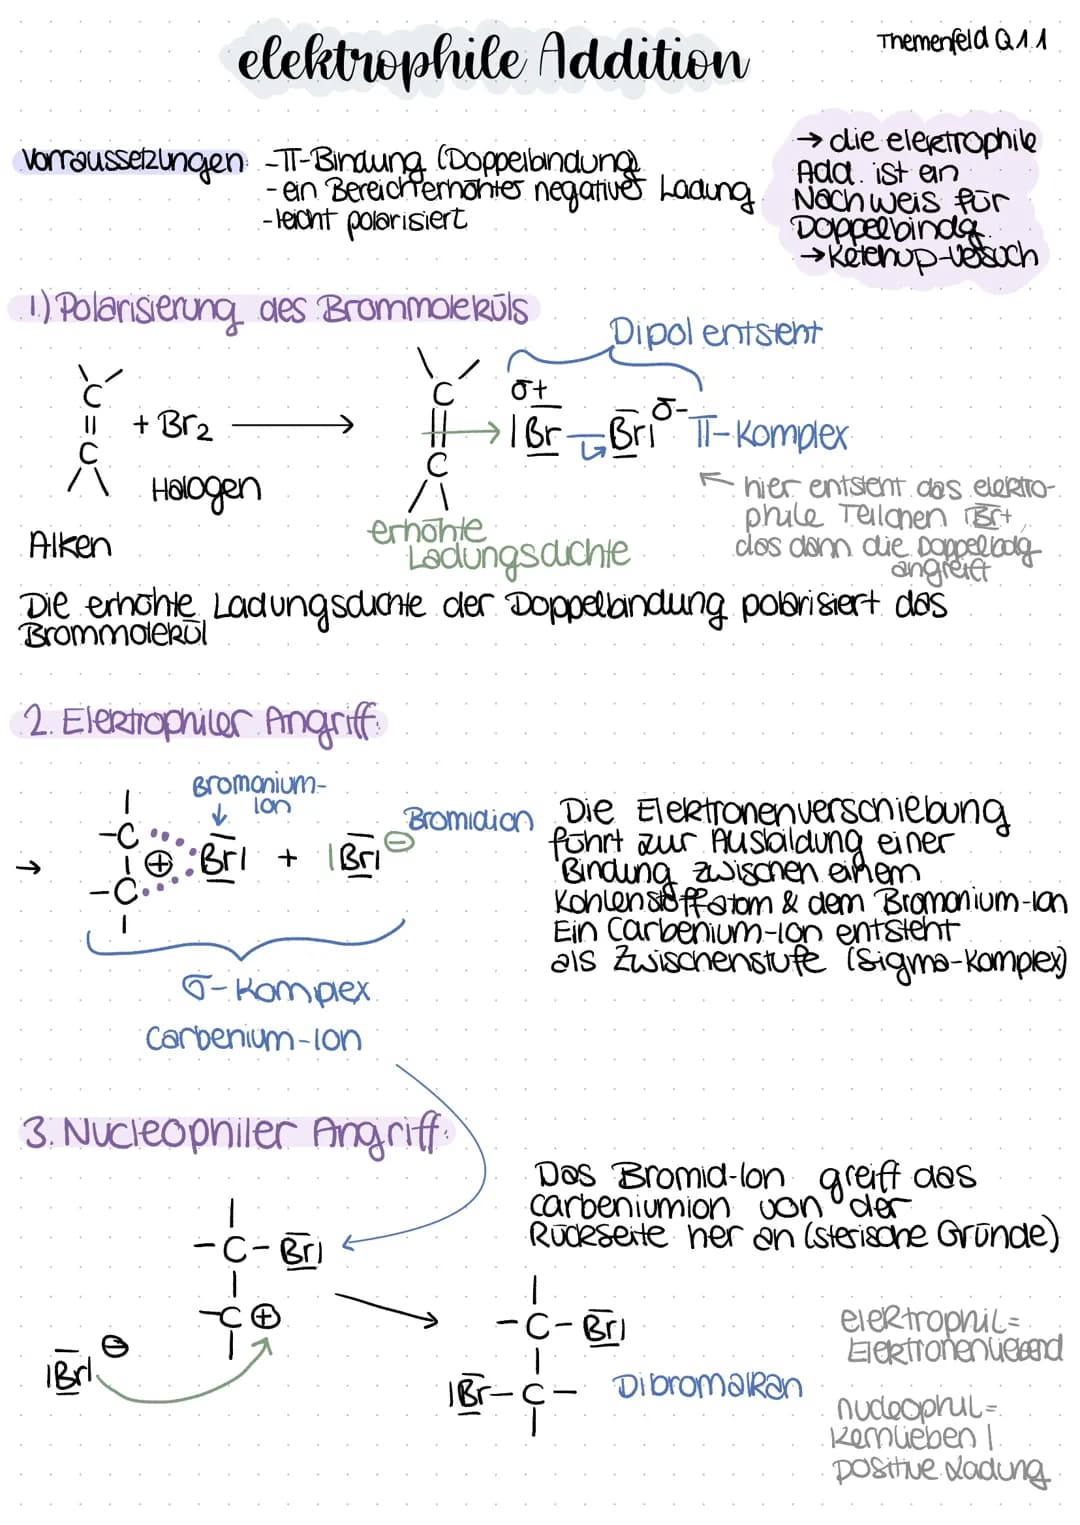 elektrophile Addition
Themenfeld Q.1.1
Vorraussetzungen: -π-Bindung (Doppelbindung)
- ein Bereich erhöhter negativer Ladung
- leicht polarisiert
→ die elektrophile
Add. ist ein
Nachweis für
Doppelbindg.
→ Ketchup-Versuch
1.) Polarisierung des Brommoleküls
Dipol entsteht
C
=
C
+ Br2
Halogen
Alken
C
C
δ+
|Br - Br| δ-
π-Komplex
erhöhte
Ladungsdichte
hier entsteht das elektro-
phile Teilchen Br+,
das dann die Doppelbdg
angreift
Die erhöhte Ladungsdichte der Doppelbindung polarisiert das
Brommolekül
2. Elektrophiler Angriff:
Bromonium-
Ion
→
-C
-C
⊕ Br| + |Br| ⊖
Bromidion
σ-Komplex
Carbenium-Ion
Die Elektronenverschiebung
führt zur Ausbildung einer
Bindung zwischen einem
Kohlenstoffatom & dem Bromonium-Ion
Ein Carbenium-Ion entsteht
als Zwischenstufe (Sigma-Komplex)
3. Nucleophiler Angriff:
-C-Br|
-C⊕
|Br| ⊖
Das Bromid-Ion greift das
carbeniumion von der
Rückseite her an (sterische Gründe)
-C-Br|
|Br-C-
Dibromalkan
elektrophil=
Elektronenliebend
nucleophil=
kernliebend |
positive Ladung